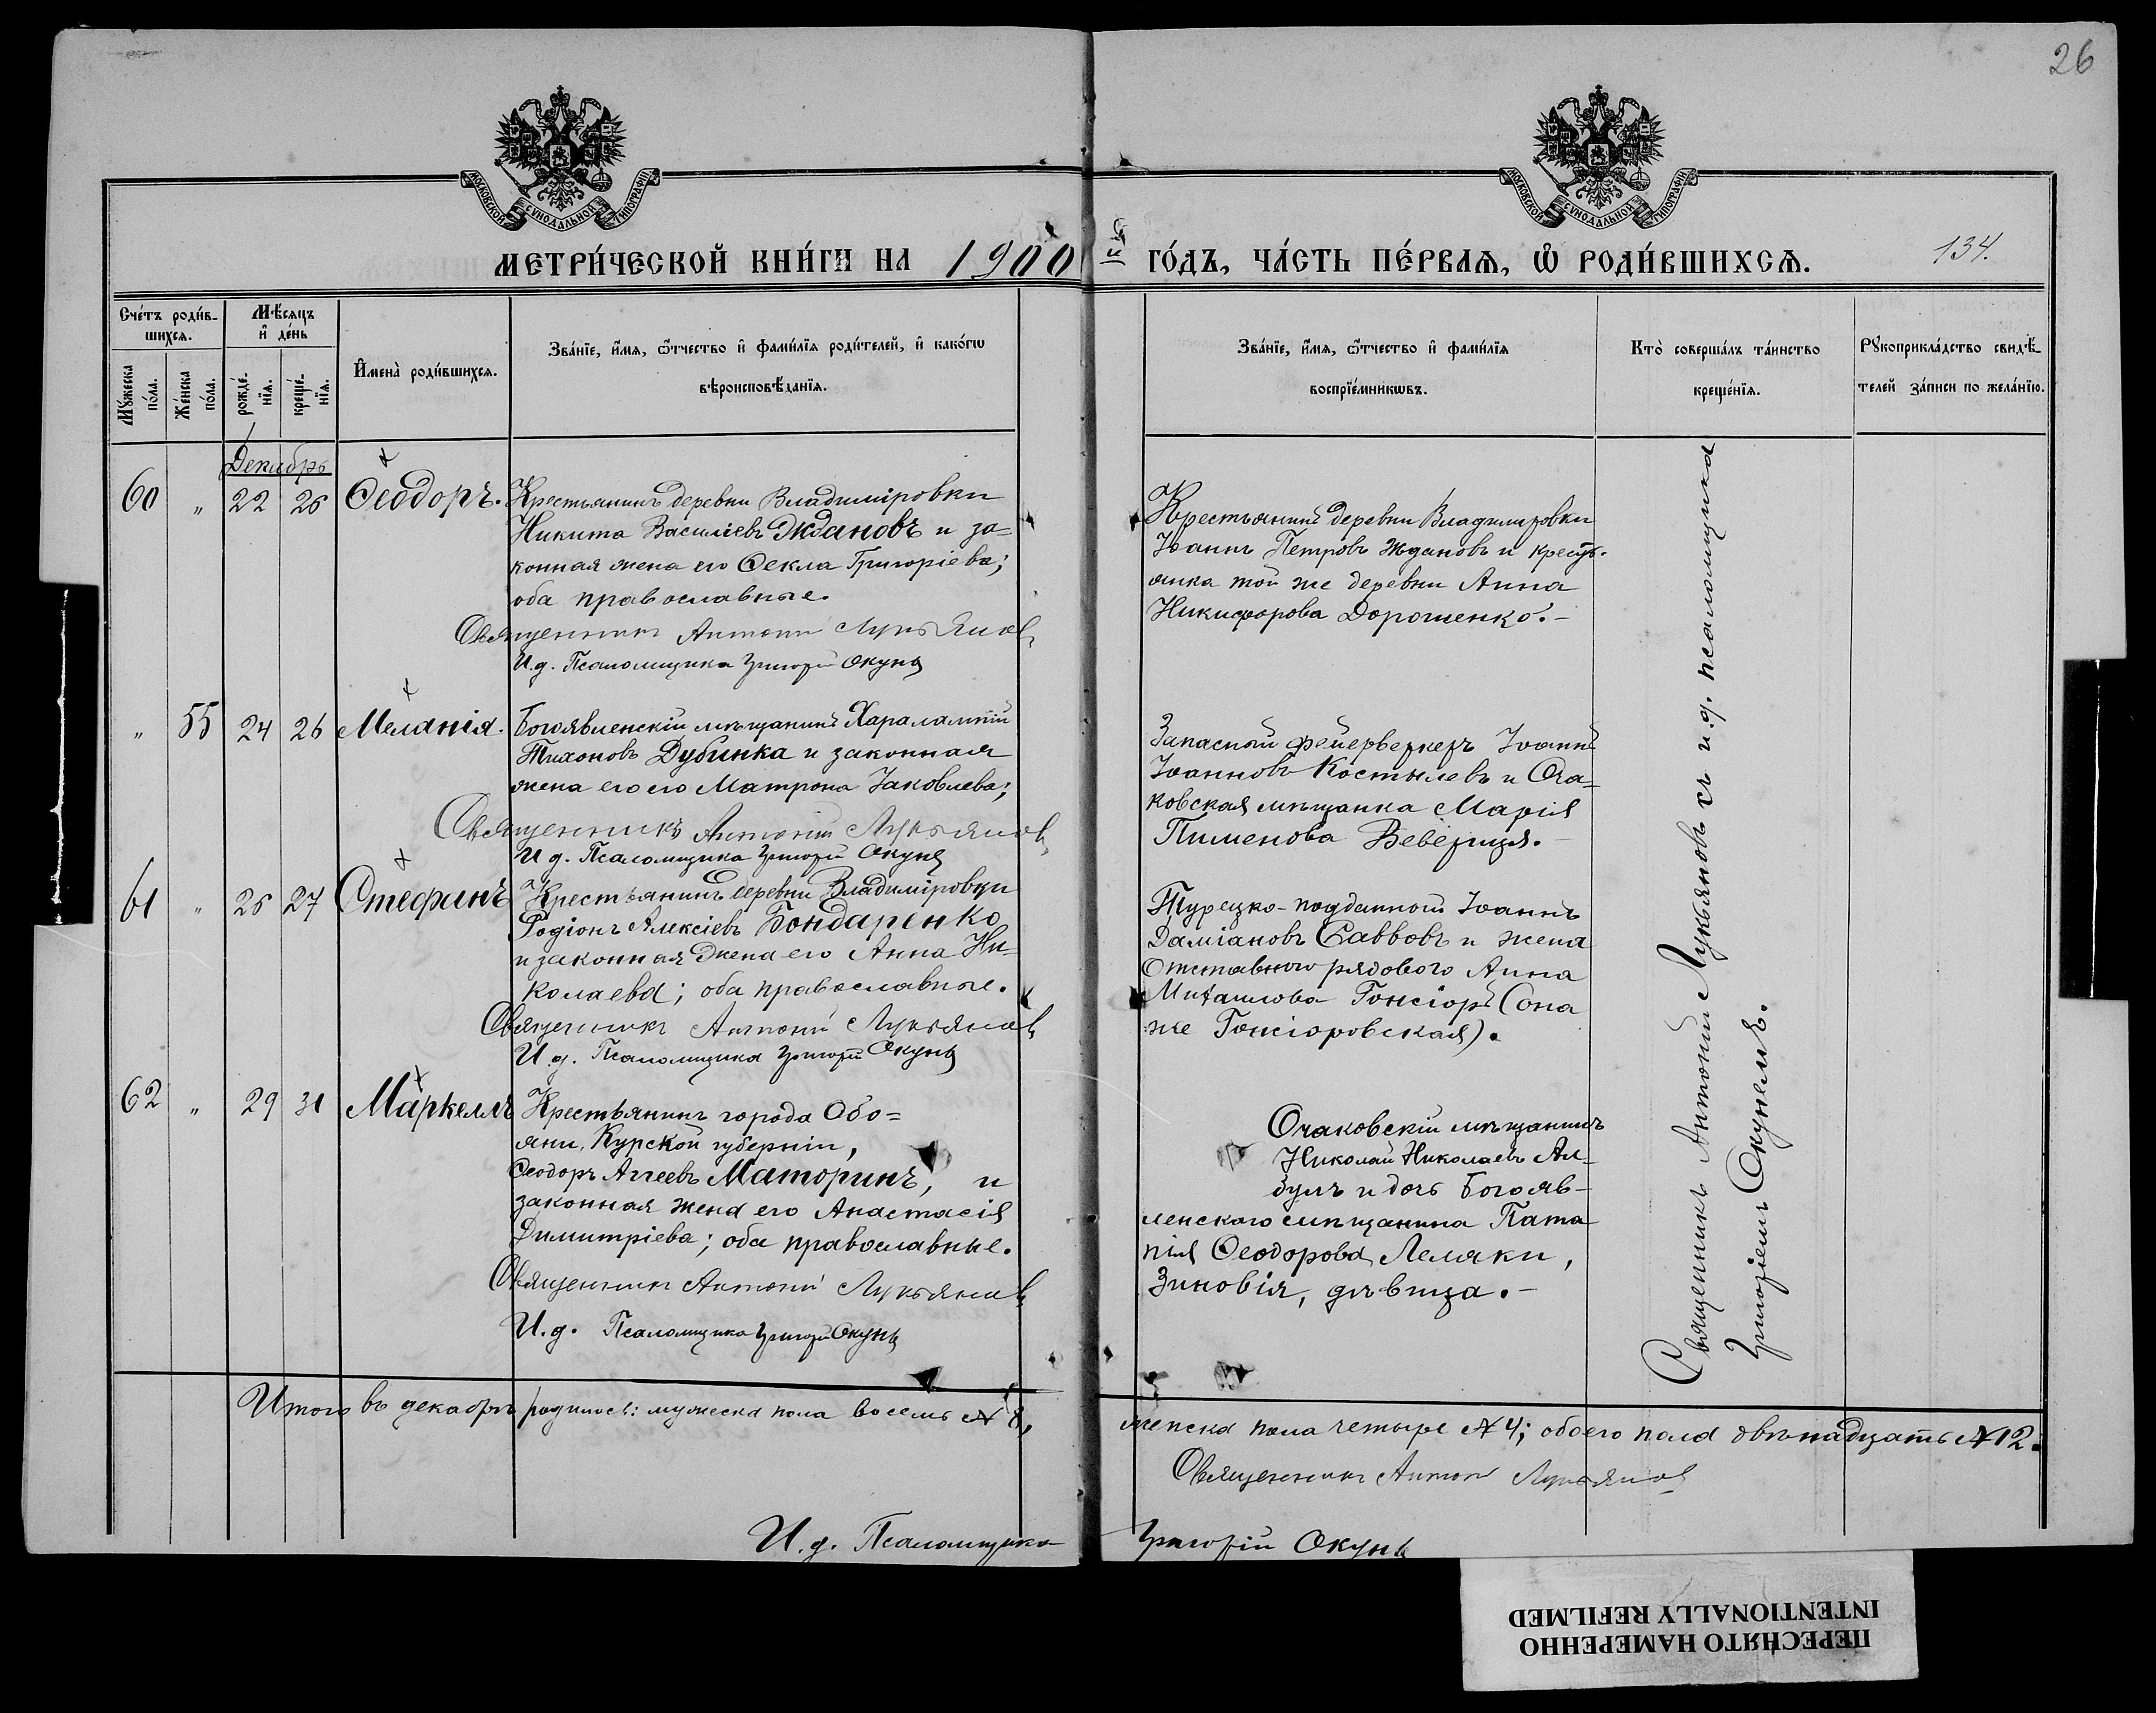 26
МОСКОВСКОЙ СУНОДАЛЬНОЙ ТИПОГРАФІИ
МОСКОВСКОЙ СУНОДАЛЬНОЙ ТИПОГРАФІИ
МЕТРИ́ЧЕСКОЙ КНИ́ГИ НА 1900 й ГО́ДЪ, ЧА́СТЬ ПЕ́РВАѦ, Ѡ РОДИ́ВШИХСѦ.
134.
Сче́тъ роди́в-
шихсѧ.
Мꙋ́жеска по́ла.
Же́нска по́ла.
Мѣ́сѧцъ
и҆ де́нь
рожде́-
нїѧ.
креще́-
нїѧ.
И҆мена̀ роди́вшихсѧ.
Зва́нїе, и҆́мѧ, ѻ҆́тчество и҆ фами́лїѧ роди́телей, и҆ како́гѡ
вѣроисповѣ́данїѧ.
Зва́нїе, и҆́мѧ, ѻ҆́тчество и҆ фами́лїѧ
воспрїе́мникѡвъ.
Кто̀ соверша́лъ та́инство
креще́нїѧ.
Рꙋкоприкла́дство свидѣ́-
телей за́писи по жела́нїю.
Декабрь
60 " 22 26 Ѳеодоръ.
Крестьянинъ деревни Владиміровки
Никита Василіевъ Ждановъ и за=
конная жена его Ѳекла Григоріева;
оба православные.
Священникъ Антоній Лукьяновъ
И.д. Псаломщика Григорій Окунь
Крестьянинъ деревни Владимировки
Іоаннъ Петровъ Ждановъ и кресть-
янка той же деревни Анна
Никифорова Дорошенко.-
" 55 24 26 Меланія.
Богоявленскій мѣщанинъ Харалампій
Тихоновъ Дубинка и законная
жена его его Матрона Іаковлева;
Священникъ Антоній Лукьяновъ
И д. Псаломщика Григорій Окунь
Запасный фейерверкеръ Іоаннъ
Іоанновъ Костылевъ и Оча=
ковская мѣщанка Марія
Пименова Веверица.-
61 " 26 27 Стефанъ
Крестьянинъ деревни Владиміровки
Родіонъ Алексіевъ Бондаренко
и законная жена его Анна Ни-
колаева; оба православные.
Священникъ Антоній Лукьяновъ
И.д. Псаломщика Григорій Окунь
Турецко-подданной Іоаннъ
Даміановъ Савовъ и жена
Отставного рядового Анна
Михаилова Гонсіоръ (она
же Гонсіоровская).
62 " 29 31 Маркеллъ
Крестьянинъ города Обо=
яни, Курской губерніи,
Ѳеодоръ Аггеевъ Маторинъ, и
законная жена его Анастасія
Димитріева; оба православные.
Священникъ Антоній Лукьяновъ
И.д. Псаломщика Григорій Окунь
Очаковскій мѣщанинъ
Николай Николаевъ
и дочь Богояв-
ленского мѣщанина Пата
пія Ѳеодорова Лемяки,
Зиновія, дѣвица.-
Священникъ Антоній Лукьяновъ съ и.д. псаломщика
Григоріемъ Окунемъ.
Итого въ декабрѣ родилось: мужеска пола восемь № 8, женска пола четыре № 4; обоего пола двѣнадцать № 12.
Священникъ Антоній Лукьяновъ
И.д. Псаломщика Григорій Окунь
ПЕРЕСНЯТО НАМЕРЕННО
INTENTIONALLY REFILMED